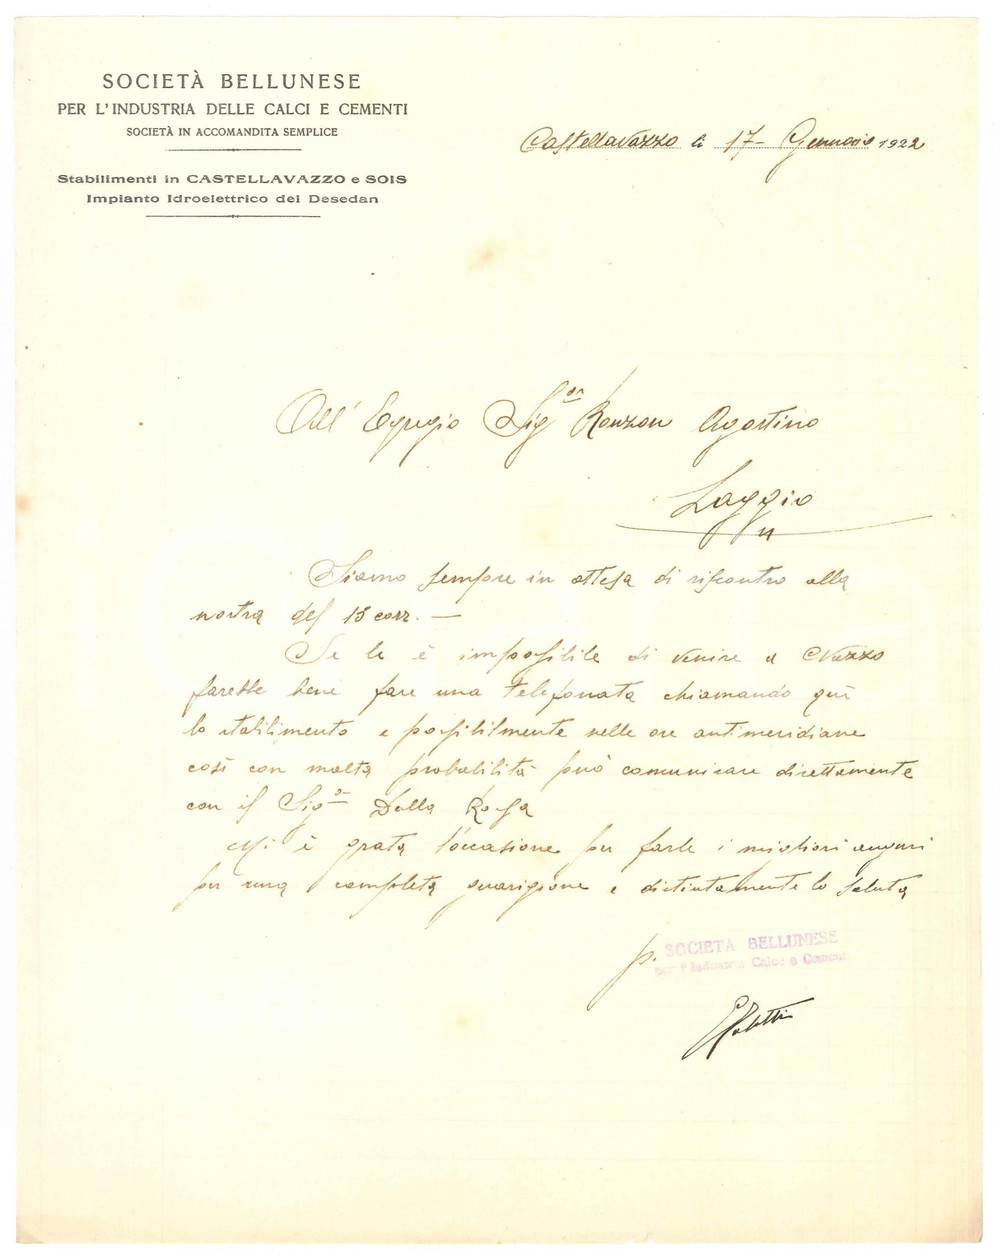 SOCIETÀ BELLUNESE
PER L'INDUSTRIA DELLE CALCI E CEMENTI
SOCIETÀ IN ACCOMANDITA SEMPLICE
Stabilimenti in CASTELLAVAZZO e SOIS
Impianto Idroelettrico del Desedan
Castellavazzo li 17- Gennaio 1922
All' Egregio Sigor Ronzon Agostino
Laggio
Siamo sempre in attesa di riscontro alla
nostra del 13 corr. —
Se le è impossibile di venire a CVazzo
farebbe bene fare una telefonata chiamando quì
lo stabilimento e possibilmente nelle ore antimeridiane
così con molta probabilità può comunicare direttamente
con il Sigor Dalla Rosa
Mi è grata l'occasione per farle i migliori auguri
per una completa guarigione e distintamente lo saluta
p. SOCIETÀ BELLUNESE
per l'Industria Calce e Cementi